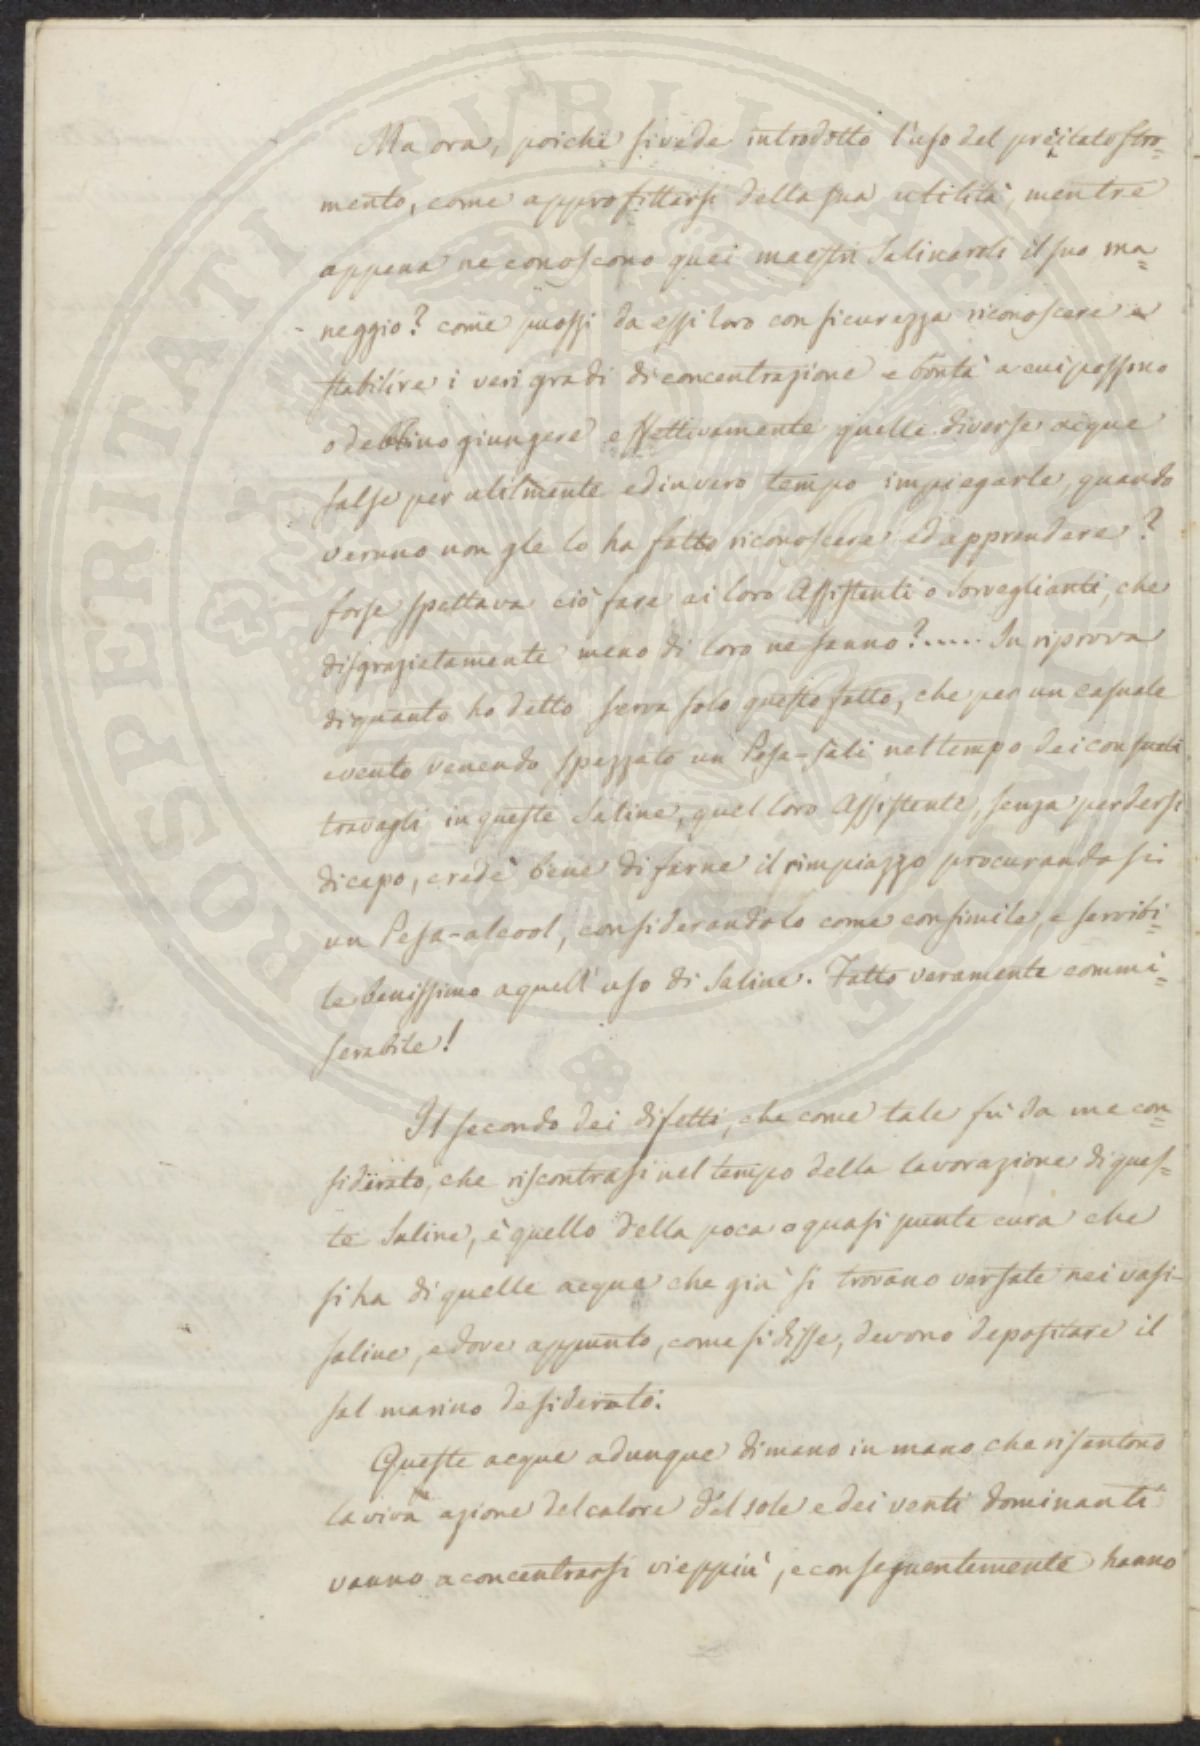 Ma ora, poiche si vede introdotto l'uso del precitato stro=
mento, come approfittarsi della sua utilità, mentre
appena ne conoscono quei maestri Salinaroli il suo ma=
neggio? come puossi da essi loro con sicurezza riconoscere e
stabilire i veri gradi di concentrazione e bontà a cui possono
o debbino giungere effettivamente quelle diverse acque
salse per utilmente ed in vero tempo impiegarle, quando
veruno non gle lo ha fatto riconoscere ed apprendere?
forse spettava ciò fare ai loro Assistenti o Sorveglianti, che
disgraziatamente meno di loro ne sanno?..... In riprova
di quanto ho detto serva solo questo fatto, che per un casuale
evento venendo spezzato un Pesa-sali nel tempo dei consueti
travagli in queste Saline, quel loro Assistente, senza perdersi
di capo, crede bene di farne il rimpiazzo procurandosi
un Pesa-alcool, considerandolo come consimile, e servibi=
le benissimo a quell'uso di Saline. Fatto veramente commi=
serabile!
Il secondo dei difetti, che come tale fù da me con=
siderato, che riscontrasi nel tempo della lavorazione di ques=
te Saline, è quello della poca o quasi punte cura che
si ha di quelle acque che già si trovano versate nei vasi-
saline, e dove appunto, come si disse, devono depositare il
sal marino desiderato.
Queste acque adunque di mano in mano che risentono
la viva azione del calore del sole e dei venti dominanti
vanno a concentrarsi vieppiù, e conseguentemente hanno
PROSPERITATI PUBLICAE